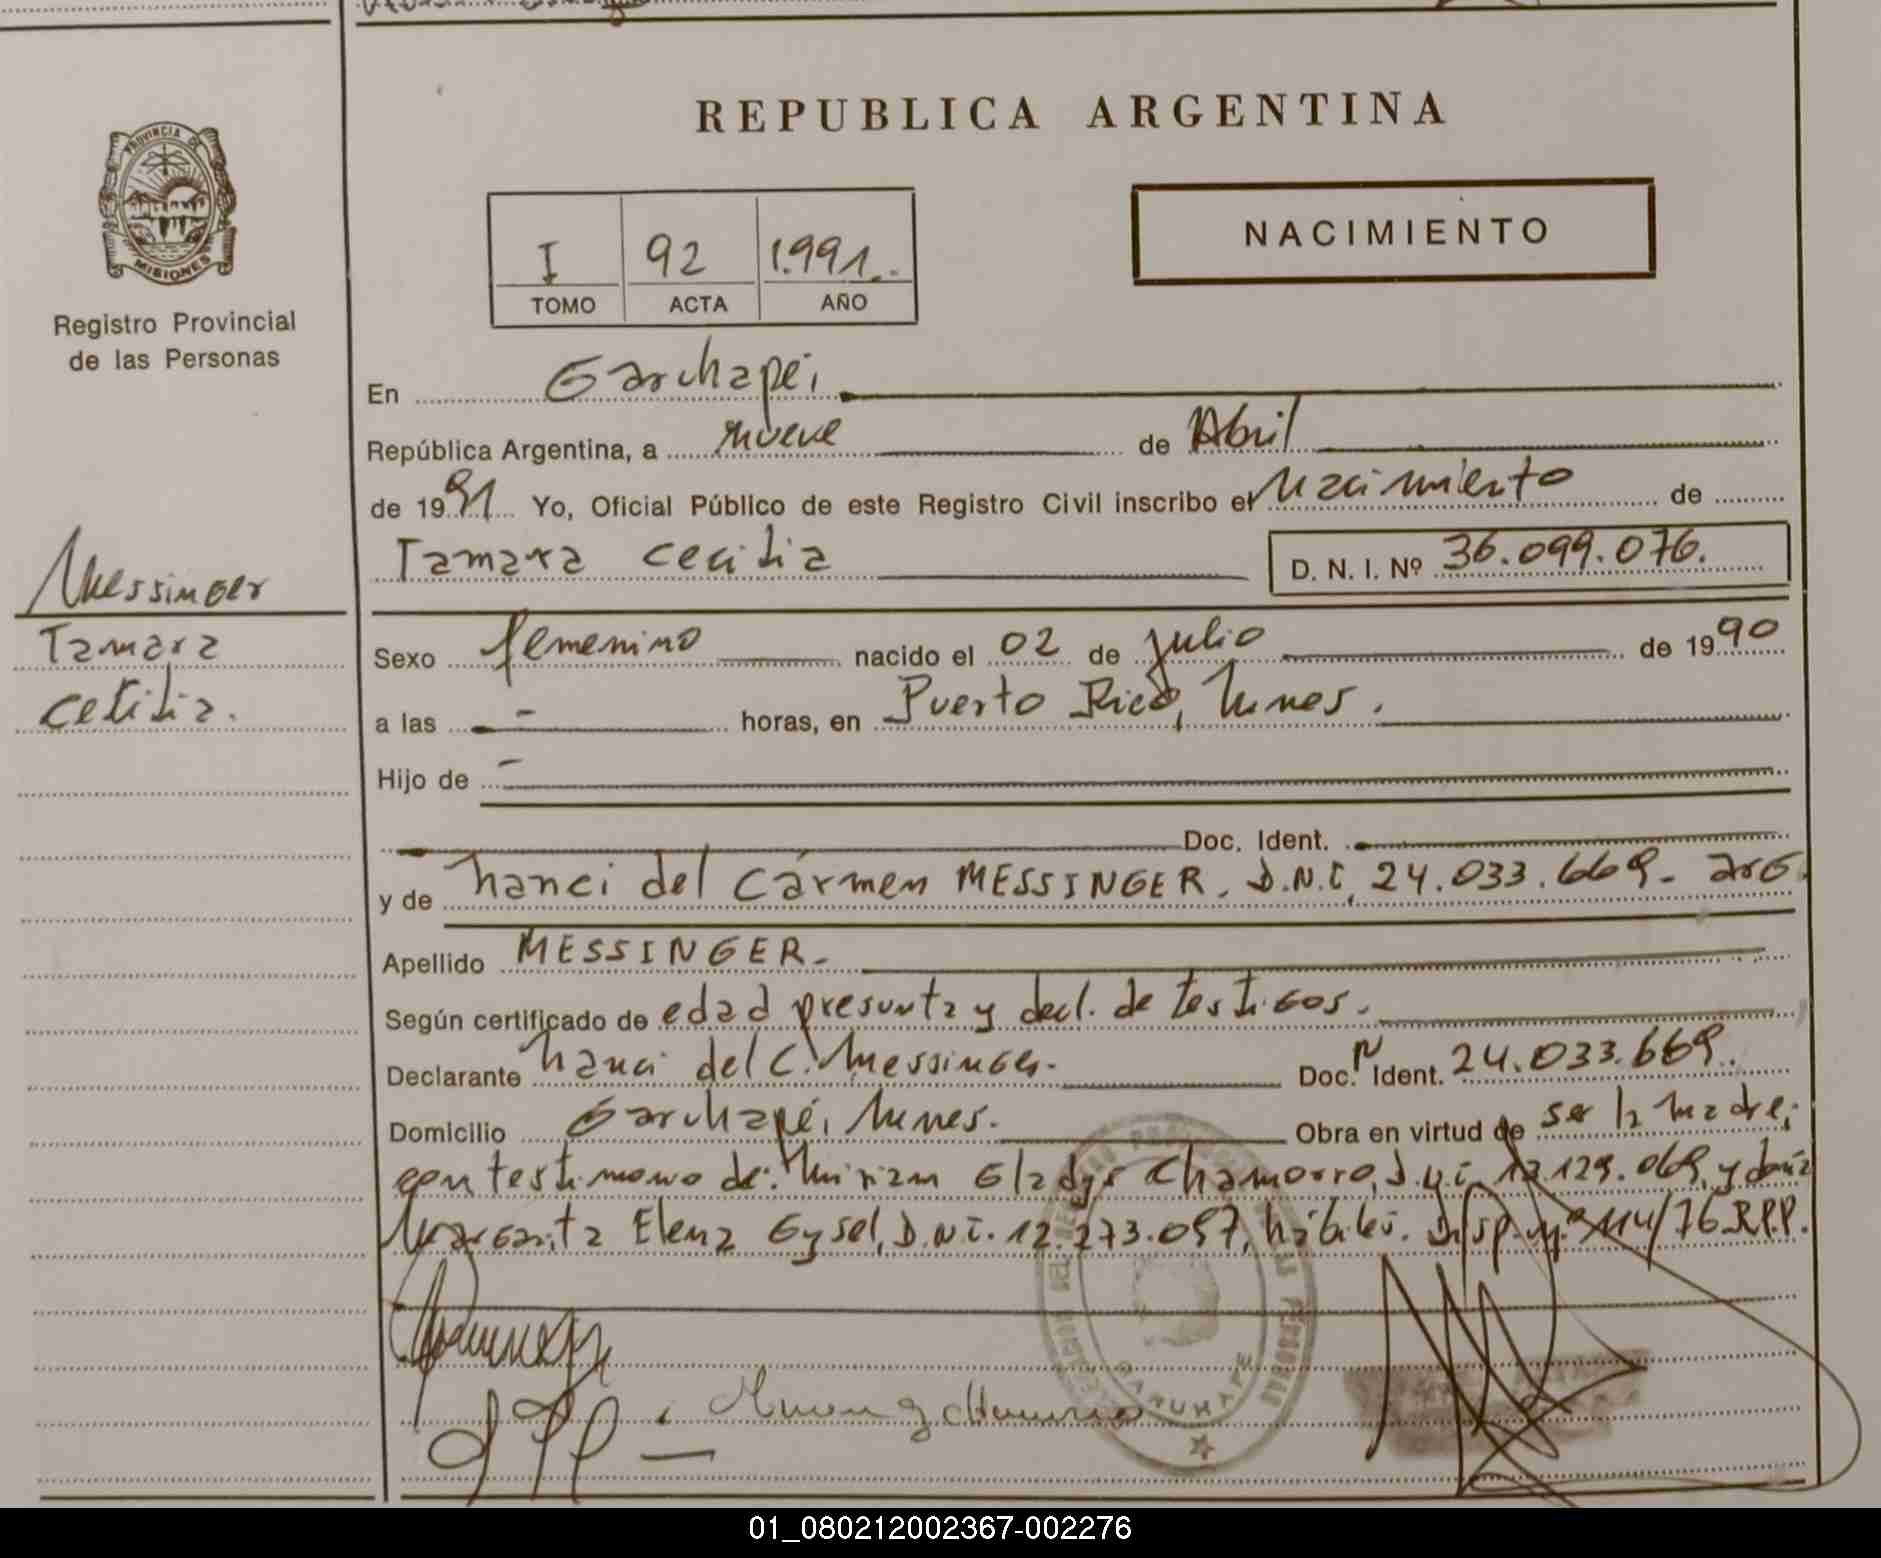 PROVINCIA DE
MISIONES
Registro Provincial
de las Personas
Messinger
Tamara
Cecilia.
REPUBLICA ARGENTINA
I 92 1.991..
TOMO ACTA AÑO
NACIMIENTO
En Garuhapé,
República Argentina, a nueve de Abril
de 1991 Yo, Oficial Público de este Registro Civil inscribo el Nacimiento de
Tamara Cecilia D. N. I. Nº 36.099.076.
Sexo femenino nacido el 02 de julio de 1990
a las - horas, en Puerto Rico,
Hijo de -
Doc. Ident.
y de Nanci del Cármen MESSINGER. D.N.I. 24.033.669. arg.
Apellido MESSINGER.-
Según certificado de edad presunta y decl. de testigos.
Declarante Nanci del C. Messinger. Doc. N Ident. 24.033.669.
Domicilio Garuhapé, Obra en virtud de ser la madre;
con testimonio de: Miriam Gladys Chamorro, d.n.i. 129.069, y doña
Margarita Elena Gysel, D.N.I. 12.273.057, hábiles. Disp. nº 114/76 R.P.P.
GARUHAPE
01_080212002367-002276